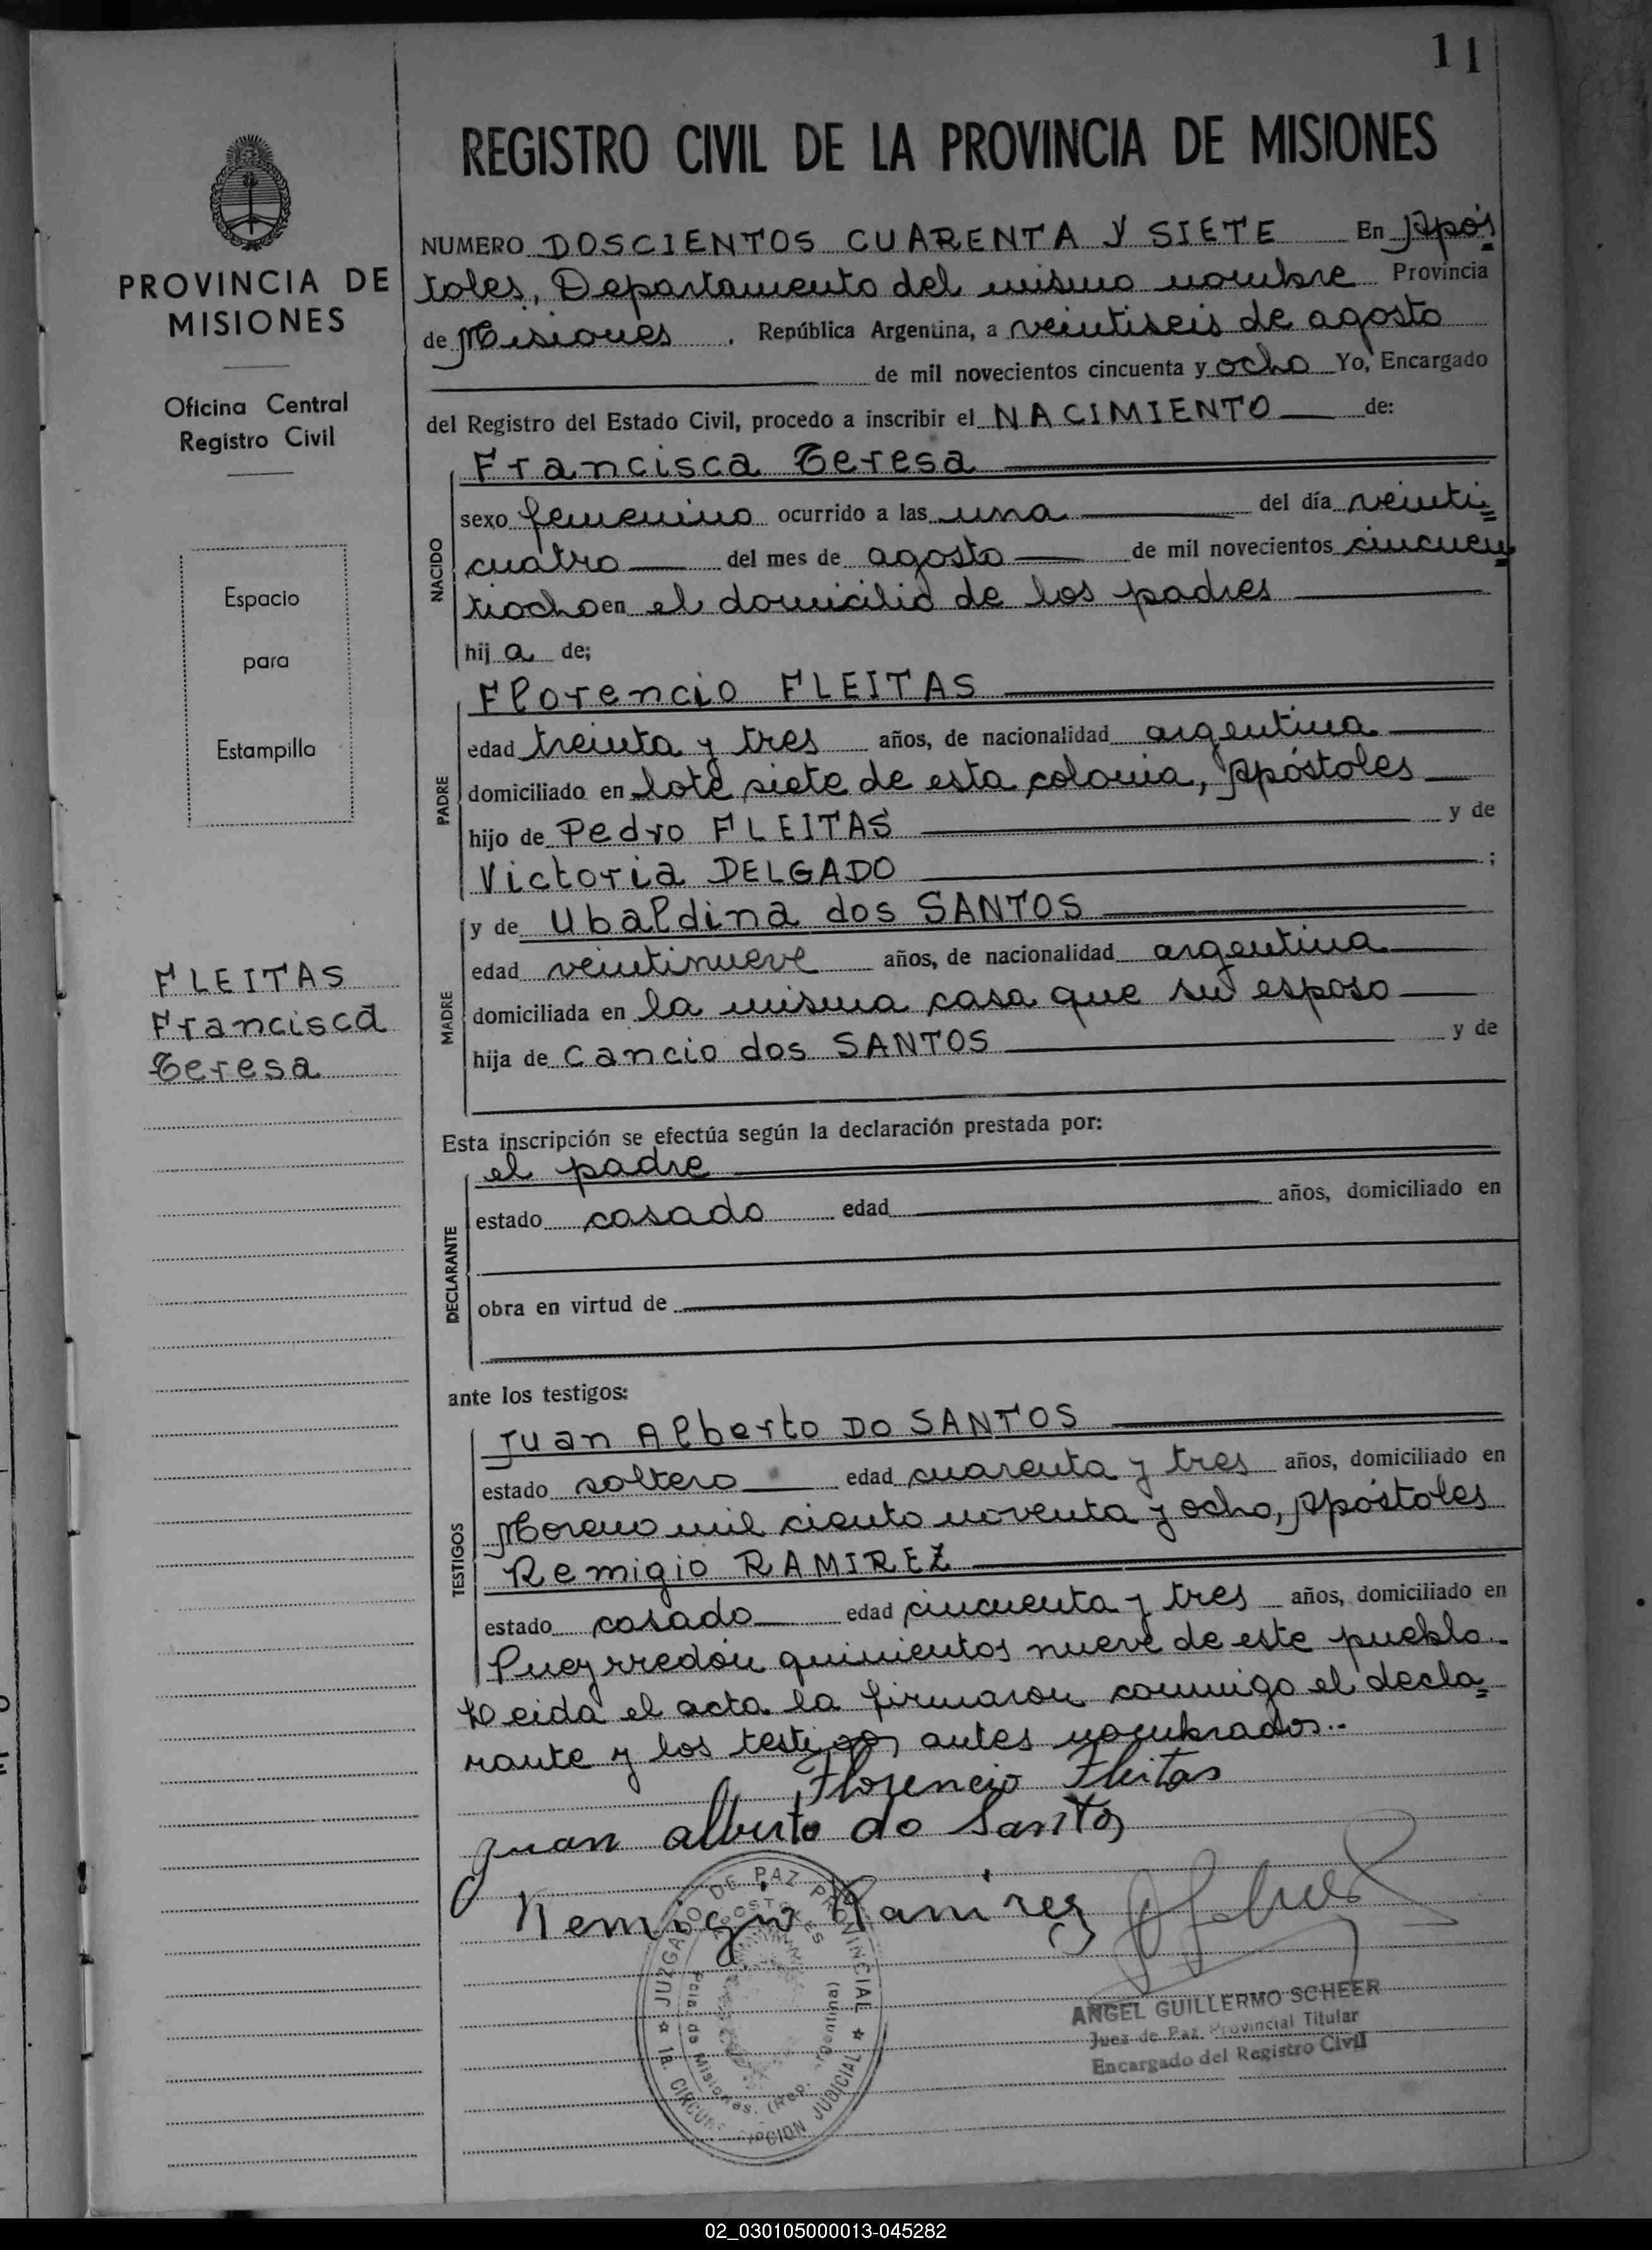 11
REGISTRO CIVIL DE LA PROVINCIA DE MISIONES
PROVINCIA DE
MISIONES
Oficina Central
Registro Civil
Espacio
para
Estampilla
FLEITAS
Francisca
Teresa
NUMERO DOSCIENTOS CUARENTA Y SIETE En Após
toles, Departamento del mismo nombre Provincia
de Misiones . República Argentina, a veintiseis de agosto
de mil novecientos cincuenta y ocho Yo, Encargado
del Registro del Estado Civil, procedo a inscribir el NACIMIENTO de:
NACIDO
Francisca Teresa
sexo femenino ocurrido a las una del día veinti=
cuatro del mes de agosto de mil novecientos cincuen
tiocho en el domicilio de los padres
hij a de;
PADRE
Florencio FLEITAS
edad treinta y tres años, de nacionalidad argentina
domiciliado en lote siete de esta colonia, Apóstoles
hijo de Pedro FLEITAS y de
Victoria DELGADO ;
MADRE
y de Ubaldina dos SANTOS
edad veintinueve años, de nacionalidad argentina
domiciliada en la misma casa que su esposo
hija de Cancio dos SANTOS y de
Esta inscripción se efectúa según la declaración prestada por:
DECLARANTE
el padre
estado casado edad años, domiciliado en
obra en virtud de
ante los testigos:
TESTIGOS
Juan Alberto DO SANTOS
estado soltero edad cuarenta y tres años, domiciliado en
Moreno mil ciento noventa y ocho, Apóstoles
Remigio RAMIREZ
estado casado edad cincuenta y tres años, domiciliado en
Pueyrredón quinientos nueve de este pueblo.-
Leida el acta la firmaron conmigo el decla=
rante y los testigos antes nombrados.-
Florencio Fleitas
Juan alberto do Santos
Remigio Ramirez
JUZGADO DE PAZ PROVINCIAL
APOSTOLES
Pcia. de Misiones. (Rep. Argentina)
1a. CIRCUNSCRIPCION JUDICIAL
ANGEL GUILLERMO SCHEER
Juez de Paz Provincial Titular
Encargado del Registro Civil
02_030105000013-045282